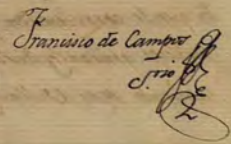 Francisco de Campos
S.rio